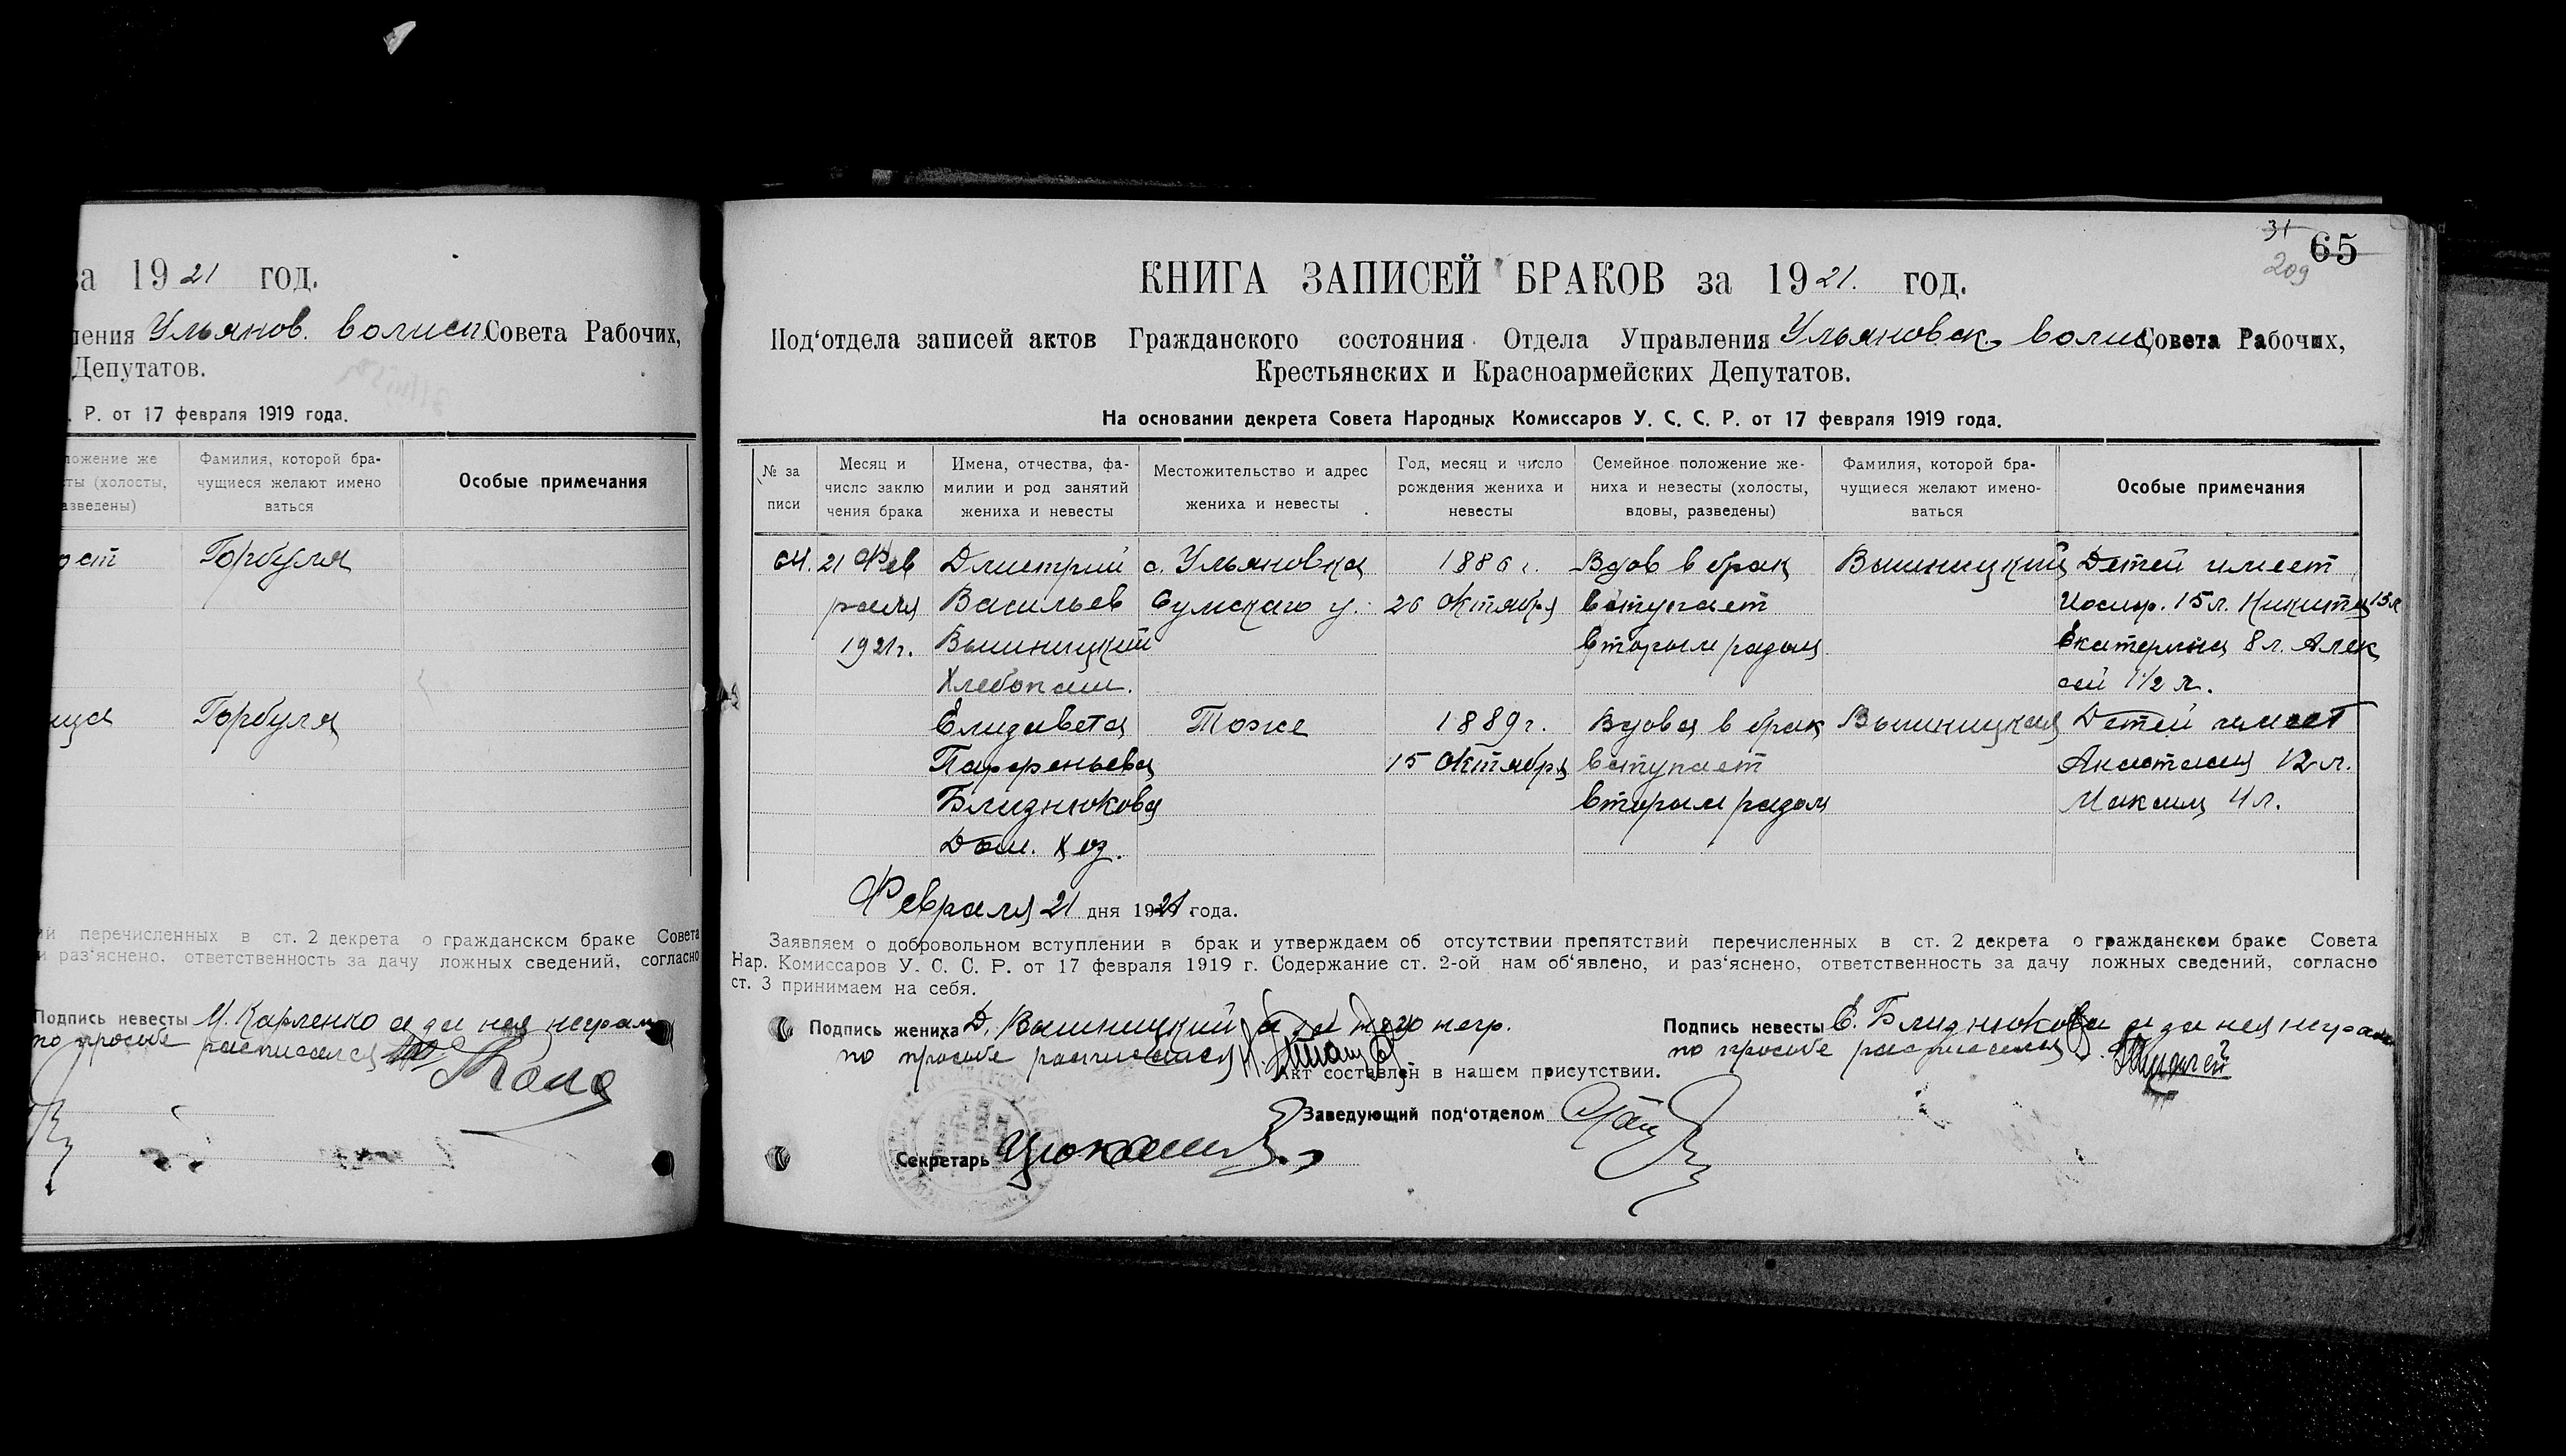 за 1921 год.
ления Ульянов. волисп. Совета Рабочих,
Депутатов.
. Р. от 17 февраля 1919 года.
ложение же
сты (холосты,
азведены)
Фамилия, которой бра-
чущиеся желают имено
ваться
Особые примечания
ост
Горбуля
ица
Горбуля
ий перечисленных в ст. 2 декрета о гражданском браке Совета
и раз‘яснено, ответственность за дачу ложных сведений, согласно
Подпись невесты М. Карпенко а за нея неграм
по просьбе расписался
31
65
209
КНИГА ЗАПИСЕЙ БРАКОВ за 1921. год.
Под‘отдела записей актов Гражданского состояния Отдела Управления Ульяновск. волис Совета Рабочих,
Крестьянских и Красноармейских Депутатов.
На основании декрета Совета Народных Комиссаров У. С. С. Р. от 17 февраля 1919 года.
№ за
писи
Месяц и
число заклю
чения брака
Имена, отчества, фа-
милии и род занятий
жениха и невесты
Местожительство и адрес
жениха и невесты
Год, месяц и число
рождения жениха и
невесты
Семейное положение же-
ниха и невесты (холосты,
вдовы, разведены)
Фамилия, которой бра-
чущиеся желают имено-
ваться
Особые примечания
64. 21 Фев Дмитрий с. Ульяновка 1886 г. Вдов в брак Вышницкий Детей имеет
раля Васильев Сумскаго у. 26 Октября вступает Иосиф. 15 л. Никита 13 л
1921 г. Вышницкий вторым разом Екатерина 8 л. Алек
Хлебопаш. сей 1 1/2 л.
Елизавета Тоже 1889 г. Вдова в брак Вышницкая Детей имеет
Парфеньева 15 Октября вступает Анастасия 12 л.
Близнюкова вторым разом Максим 4 л.
Дом. хоз.
Февраля 21 дня 1921 года.
Заявляем о добровольном вступлении в брак и утверждаем об отсутствии препятствий перечисленных в ст. 2 декрета о гражданском браке Совета
Нар. Комиссаров У. С. С. Р. от 17 февраля 1919 г. Содержание ст. 2-ой нам об‘явлено, и раз‘яснено, ответственность за дачу ложных сведений, согласно
ст. 3 принимаем на себя.
Подпись жениха Д. Вышницкий а за него негр.
по просьбе расписался
Подпись невесты Е. Близнюкова а за нея неграм
по просьбе расписался
Акт составлен в нашем присутствии.
Заведующий под‘отделом
Секретарь